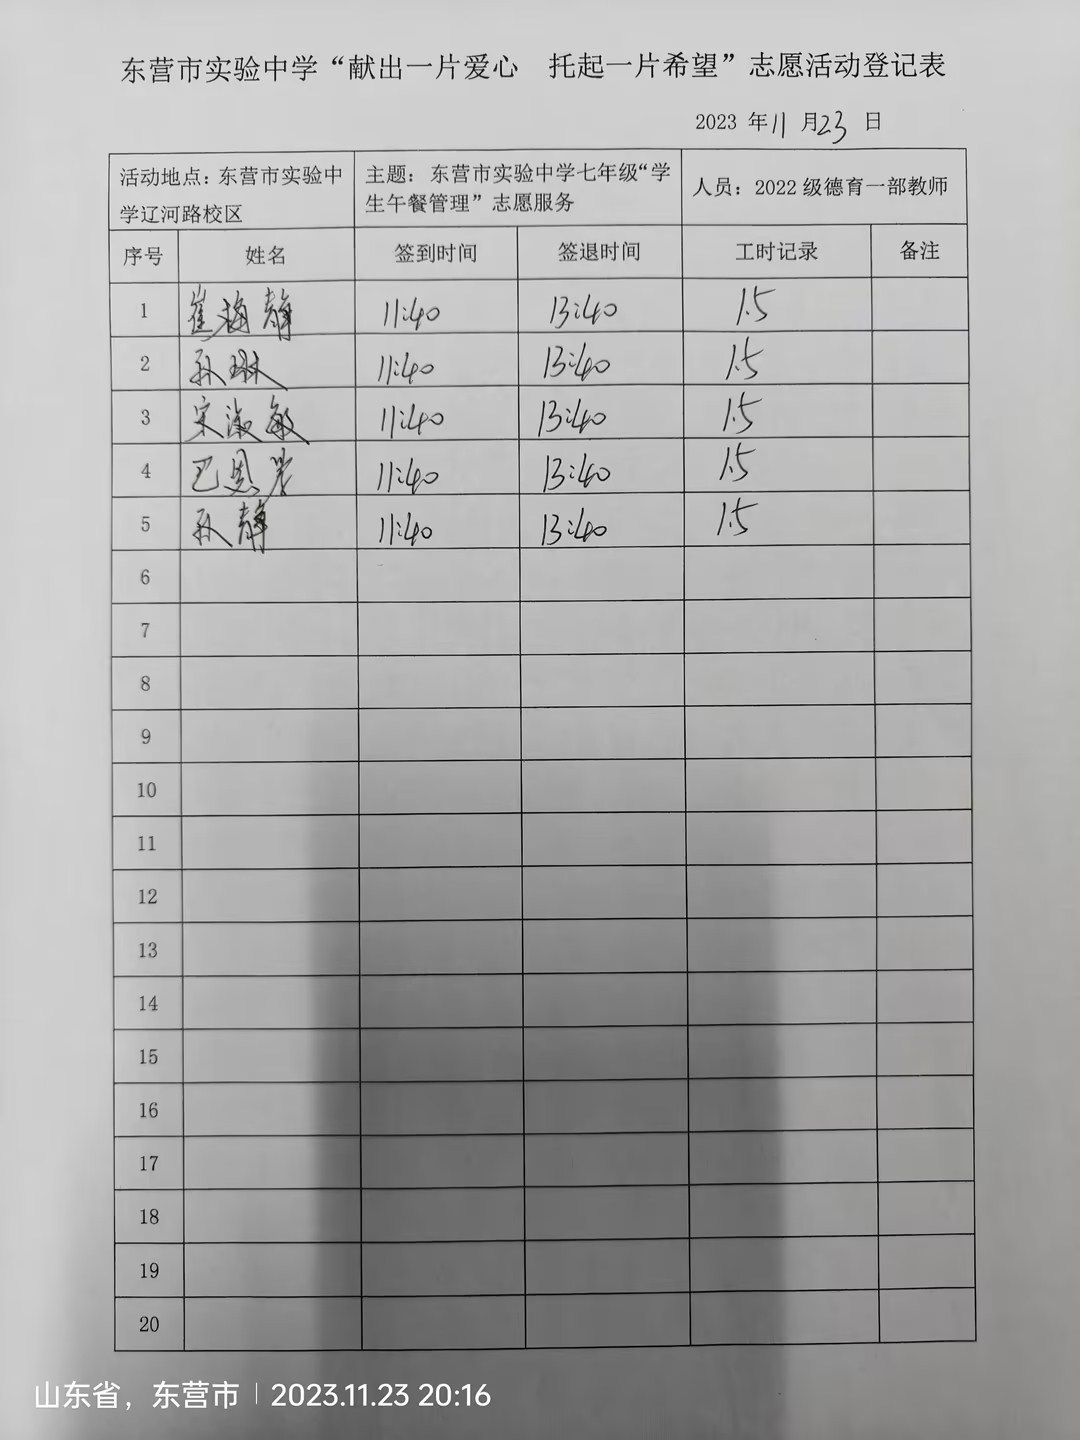 东营市实验中学“献出一片爱心 托起一片希望”志愿活动登记表
2023 年11 月23 日
活动地点：东营市实验中学辽河路校区 主题：东营市实验中学七年级“学生午餐管理”志愿服务 人员：2022 级德育一部教师
序号 姓名 签到时间 签退时间 工时记录 备注
1 崔梅静 11:40 13:40 1.5
2 孙琳 11:40 13:40 1.5
3 宋淑敏 11:40 13:40 1.5
4 巴恩 11:40 13:40 1.5
5 孙静 11:40 13:40 1.5
6
7
8
9
10
11
12
13
14
15
16
17
18
19
20
山东省，东营市 | 2023.11.23 20:16